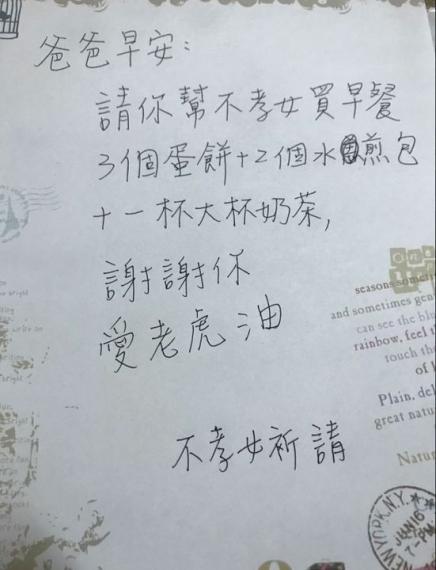 爸爸早安:
請你幫不孝女買早餐
3個蛋餅+2個水煎包
+一杯大杯奶茶,
謝謝你
愛老虎油
不孝女祈請
seasons
and sometimes gen
can see the blu
rainbow, feel t
touch the
of l
Plain, del
great natu
Natur
NEW YORK, N.Y.
JUN 16
7-PM